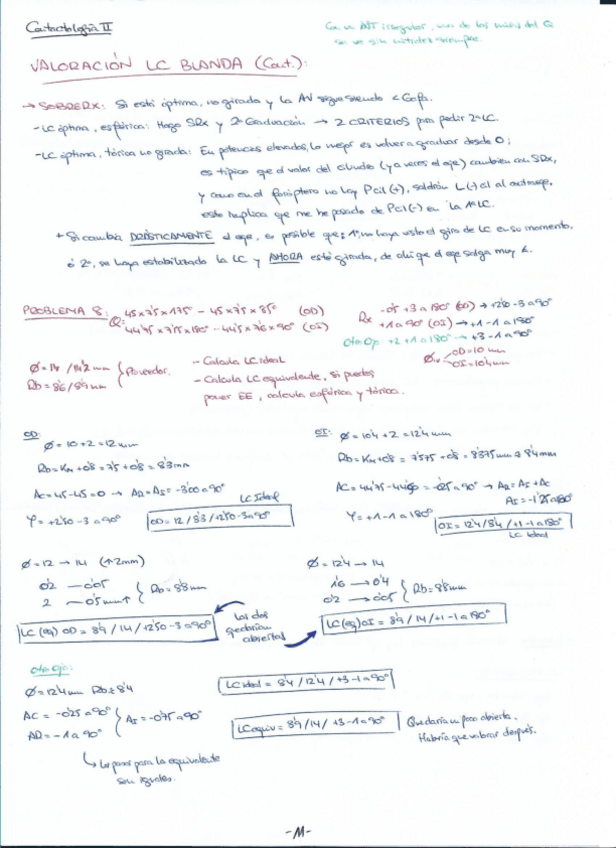 Contactología II
Con AST irregular, una de las miras del Q
se ve sin nitidez siempre.
VALORACIÓN LC BLANDA (Cont.):
→ SOBRERX: Si está óptima, no girada y la AV sigue siendo < Gafa.
- LC óptima, esférica: Hago SRx y 2ª Graduación → 2 CRITERIOS para pedir 2ª LC.
- LC óptima, tórica no girada: En potencias elevadas, lo mejor es volver a graduar desde 0;
es típico que el valor del cilindro (y a veces el eje) cambien con SRx,
y como en el foróptero no hay Pcil (+), saldrán L(-)cil al
esto implica que me he pasado de Pcil(-) en la 1ª LC.
* Si cambia DRÁSTICAMENTE el eje, es posible que: 1º, no haya visto el giro de LC en su momento,
ó 2º, se haya estabilizado la LC y AHORA está girada, de ahí que el eje salga muy ≠.
PROBLEMA 8: Q: 45x7'5x175º - 45x7'5x85º (OD)
44'45x7'15x180º - 44'5x7'6x90º (OI)
Rx -0'5+3a180º (OD) → +2'50-3a90º
+1a90º (OI) → +1-1a180º
Otro Ojo: +2+1a180º → +3-1a90º
Øiv OD=10mm
OI=10'4mm
Ø = 14 / 14'2 mm
Rb = 8'6 / 8'9 mm } Proveedor.
- Calcula LC ideal
- Calcula LC equivalente, si puedes
poner EE, calcula esférica y tórica.
OD:
Ø = 10+2 = 12mm
Rb = Km+0'8 = 7'5+0'8 = 8'3mm
AC = 45-45 = 0 → AR = AI = -3'00a90º
LC Ideal
Y = +2'50-3a90º
OD = 12 / 8'3 / +2'50-3a90º
OI: Ø = 10'4+2 = 12'4mm
Rb = Km+0'8 = 7'575+0'8 = 8'375mm ≈ 8'4mm
→ AR = AI + AC
AI = -1'25a180º
Y = +1-1a180º
OI = 12'4 / 8'4 / +1-1a180º
LC Ideal
Ø = 12 → 14 (↑2mm)
0'2 — 0'05
2 — 0'5mm↑ } Rb = 8'8mm
LC (eq) OD = 8'9 / 14 / +2'50-3a90º
Las dos
quedarían
abiertas
Ø = 12'4 → 14
1'6 → 0'4
0'2 → 0'05 } Rb = 8'8mm
LC (eq) OI = 8'9 / 14 / +1-1a90º
Otro Ojo:
Ø = 12'4mm Rb = 8'4
AC = -0'25a90º
AR = -1a90º } AI = -0'75a90º
↳ Los pasos para la equivalente
son iguales.
LC ideal = 8'4 / 12'4 / +3-1a90º
LC equiv = 8'9 / 14 / +3-1a90º
Quedaría un poco abierta.
Habría que valorar después.
-11-